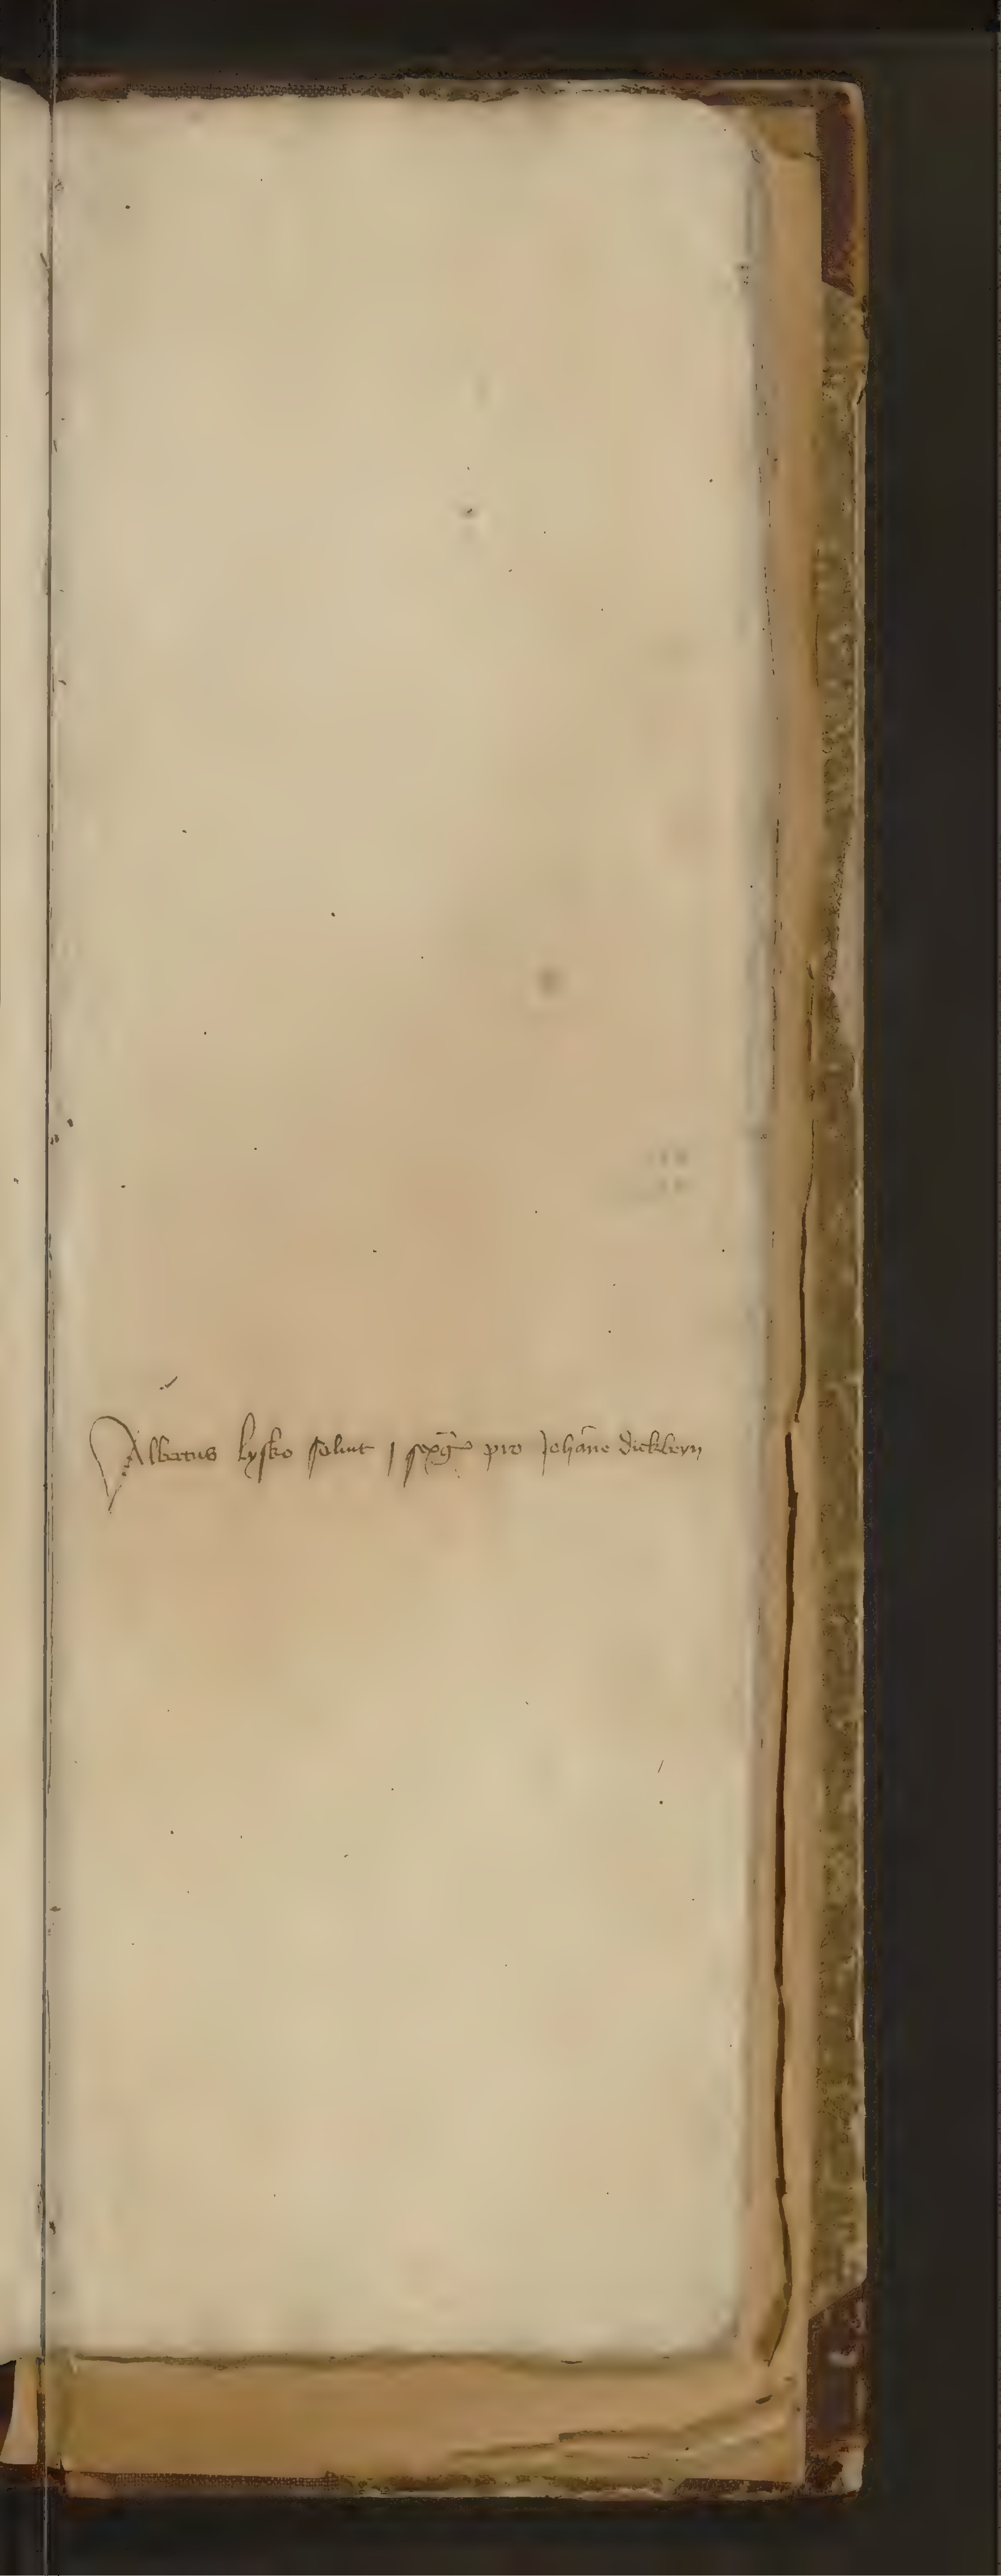 Albertus lysko soluit j sexg̃ pro Johãne dickbeyn